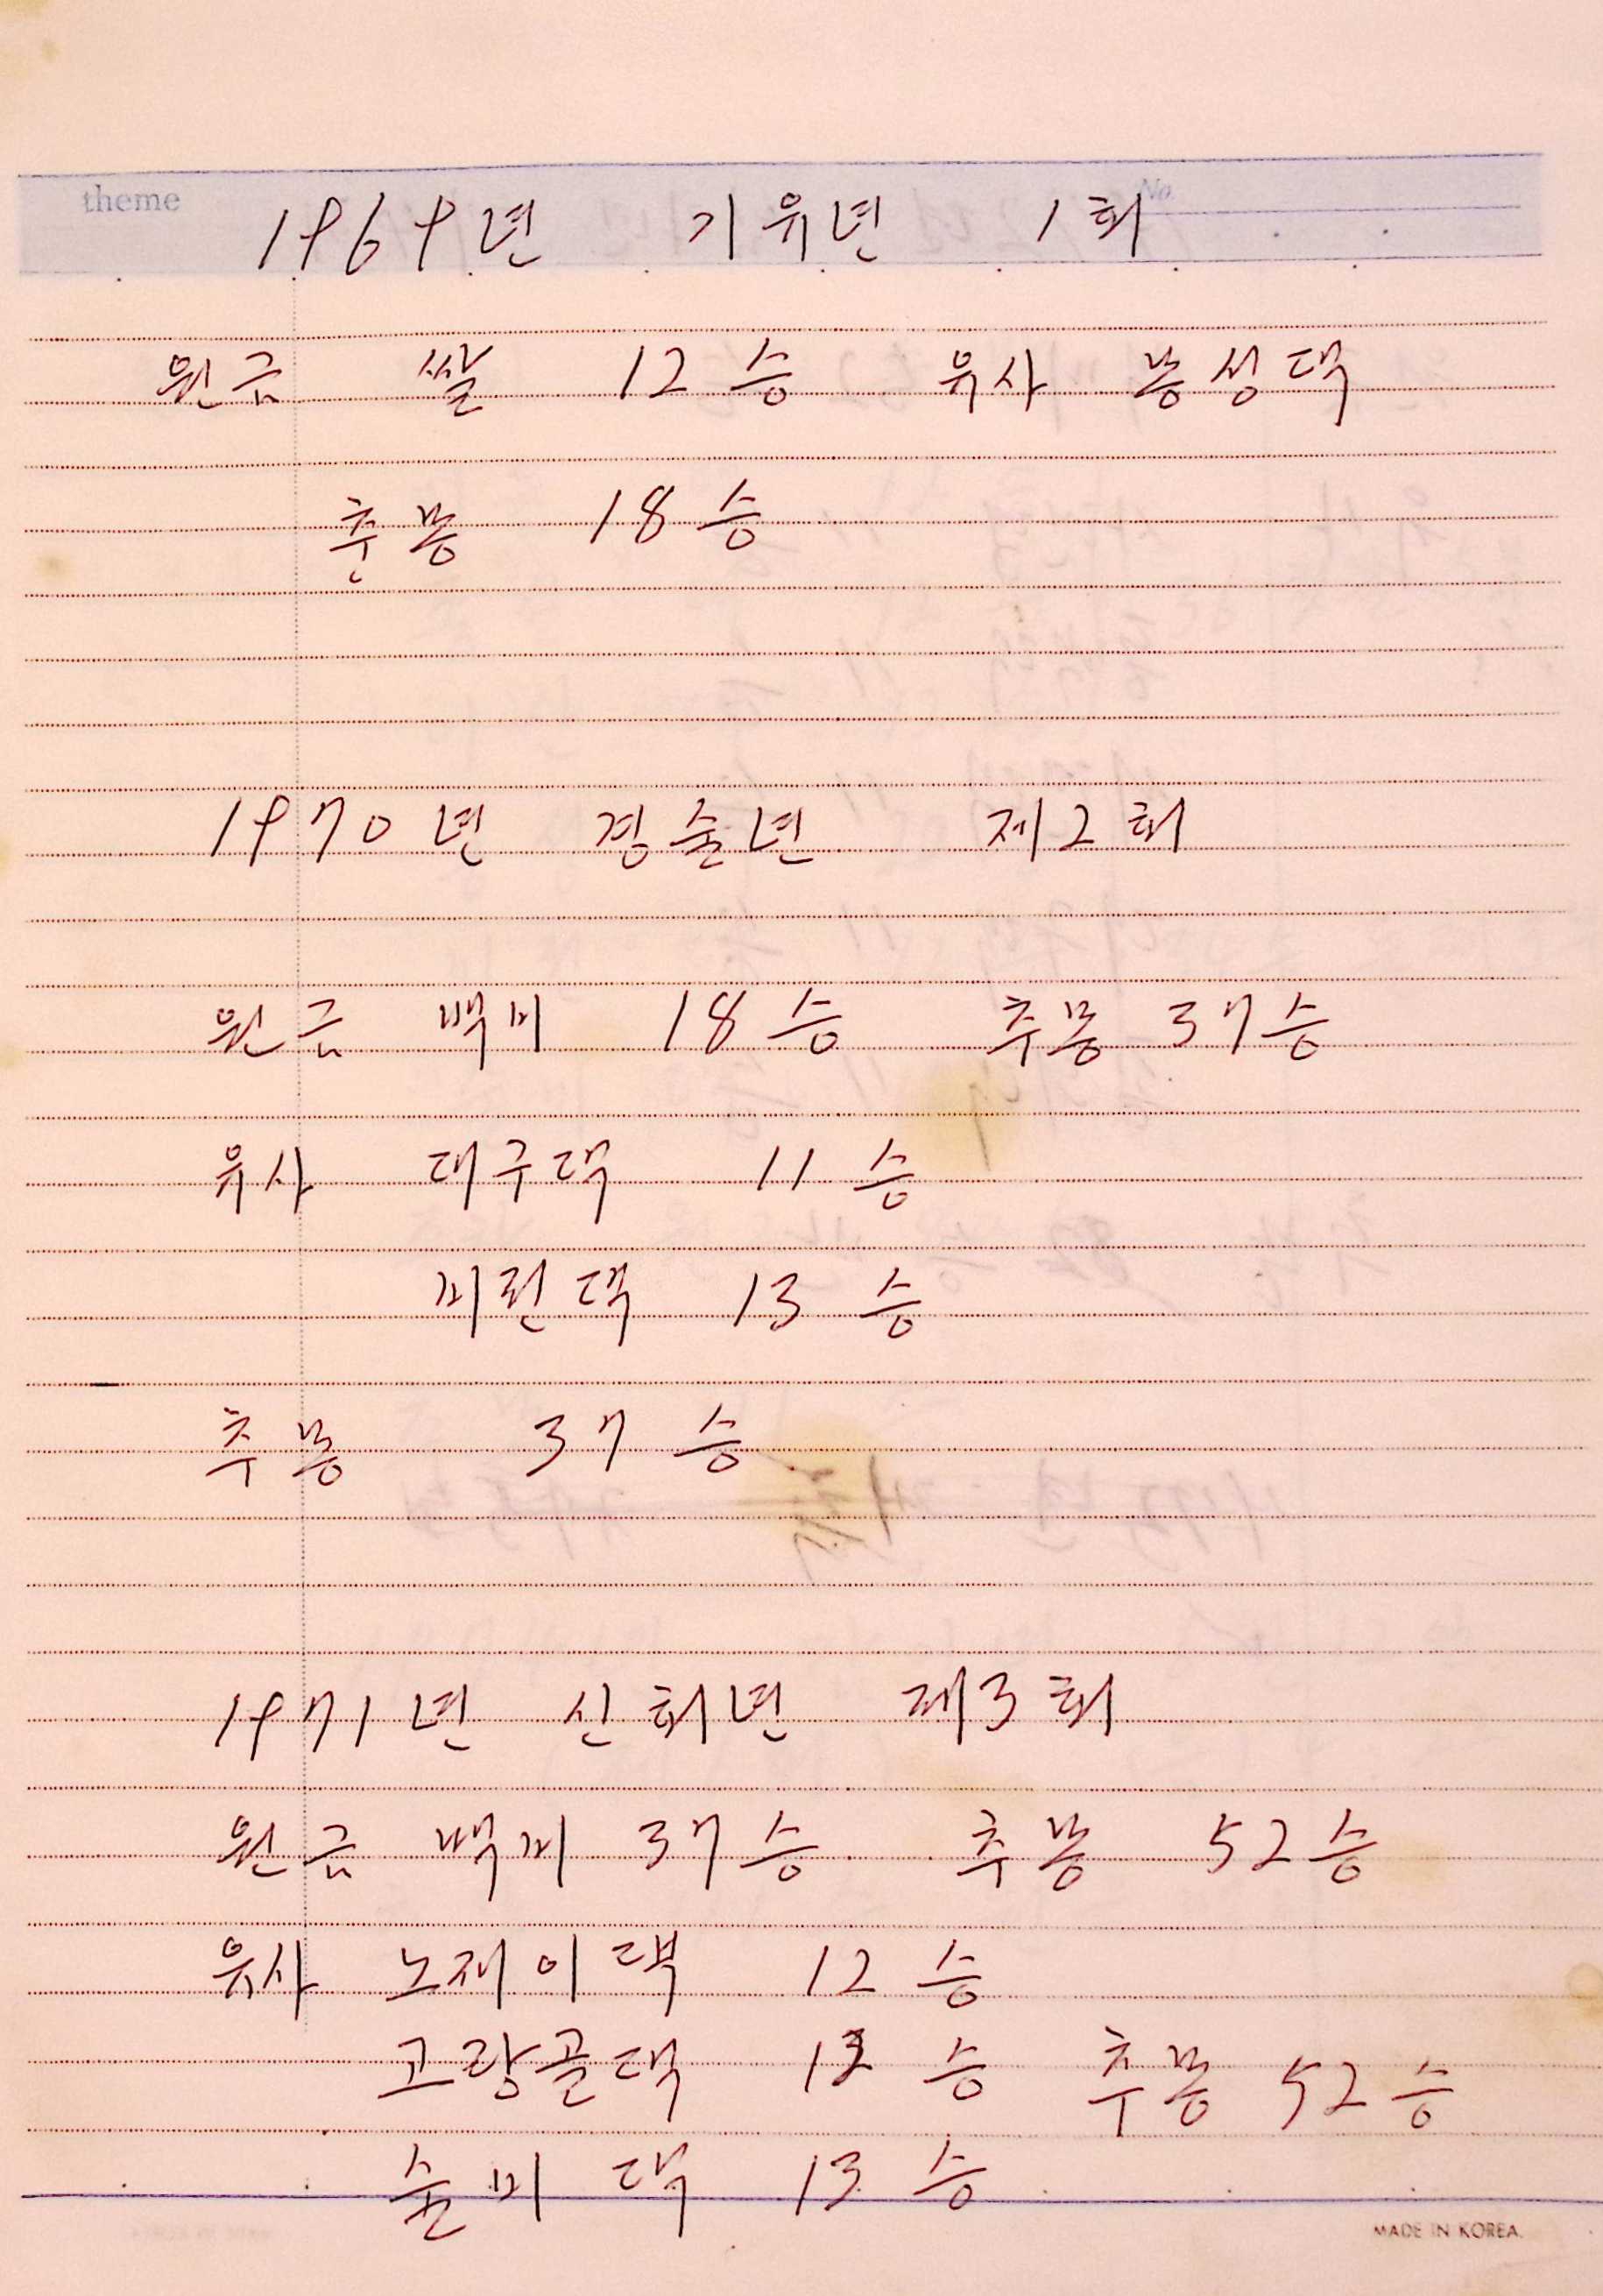 theme 1969년 기유년 1회 No.
원금 쌀 12승 유사 농성댁
추봉 18승
1970년 경술년 제2회
원금 백미 18승 추봉 37승
유사 대구댁 11승
지린댁 13승
추봉 37승
1971년 신해년 제3회
원금 백미 37승 추봉 52승
유사 노재이댁 12승
고랑골댁 승 추봉 52승
솔미댁 13승
MADE IN KOREA.